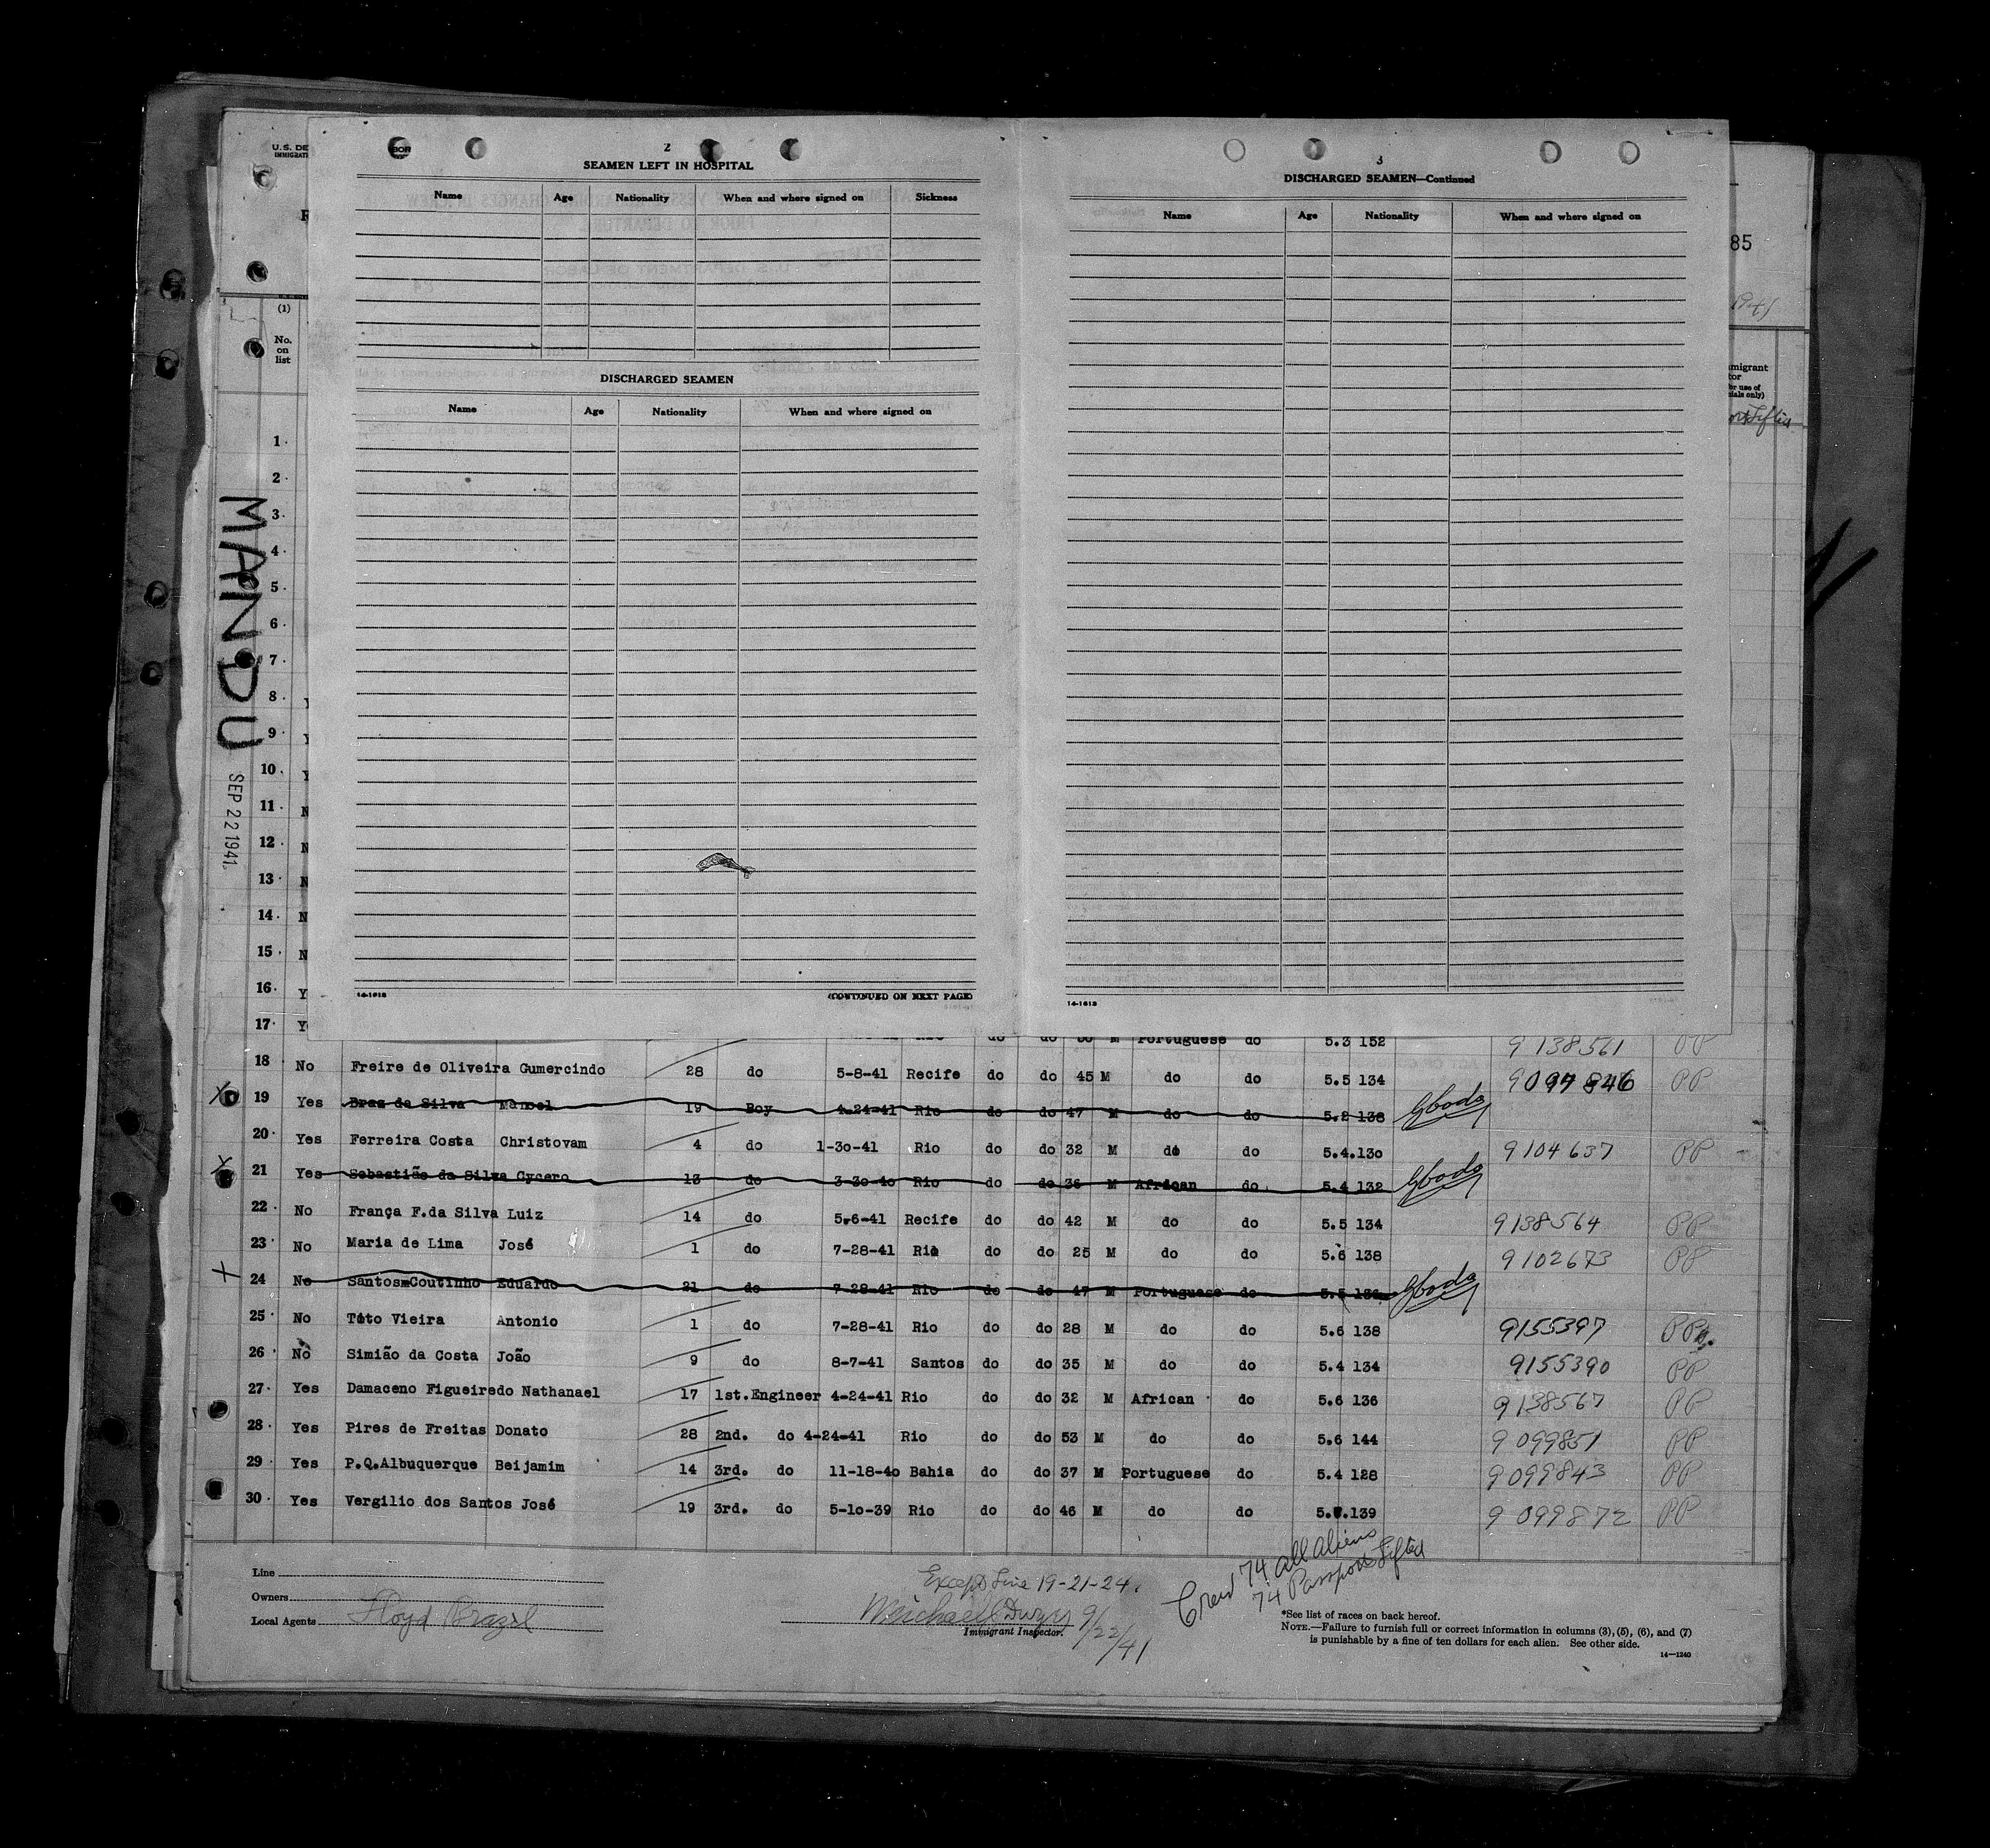 U.S. DE
IMMIGRAT
BOR
2
SEAMEN LEFT IN HOSPITAL
Name Age Nationality When and where signed on Sickness
DISCHARGED SEAMEN
Name Age Nationality When and where signed on
14-1613
(CONTINUED ON NEXT PAGE)
3
DISCHARGED SEAMEN—Continued
Name Age Nationality When and where signed on
14-1613
85
1941
migrant
tor
or use of
cials only)
(1)
No.
on
list
MANDU
SEP 22 1941
1
2
3
4
5
6
7
8
9
10
11 N
12 N
13 N
14 N
15 N
16 Y
17 Y Rio do do M Portuguese do 5.3 152 9138561 PP
18 No Freire de Oliveira Gumercindo 28 do 5-8-41 Recife do do 45 M do do 5.5 134 9097846 PP
19 Yes Braz da Silva Manoel 19 Boy 4-24-41 Rio do do 47 M do do 5.2 138
20 Yes Ferreira Costa Christovam 4 do 1-30-41 Rio do do 32 M do do 5.4.130 9104637 PP
21 Yes Sebastião da Silva Cycero 13 do 3-30-40 Rio do do 36 M African do 5.4 132
22 No França F.da Silva Luiz 14 do 5-6-41 Recife do do 42 M do do 5.5 134 9138564 PP
23 No Maria de Lima José 1 do 7-28-41 Rio do do 25 M do do 5.6 138 9102673 PP
24 No Santos Coutinho Eduardo 21 do 7-28-41 Rio do do 47 M Portuguese do
25 No Tôto Vieira Antonio 1 do 7-28-41 Rio do do 28 M do do 5.6 138 9155397 PP
26 No Simião da Costa João 9 do 8-7-41 Santos do do 35 M do do 5.4 134 9155390 PP
27 Yes Damaceno Figueiredo Nathanael 17 1st.Engineer 4-24-41 Rio do do 32 M African do 5.6 136 9138567 PP
28 Yes Pires de Freitas Donato 28 2nd. do 4-24-41 Rio do do 53 M do do 5.6 144 9099851 PP
29 Yes P.Q.Albuquerque Beijamim 14 3rd. do 11-18-40 Bahia do do 37 M Portuguese do 5.4 128 9099843 PP
30 Yes Vergilio dos Santos José 19 3rd. do 5-10-39 Rio do do 46 M do do 5.7.139 9099872 PP
Line
Owners
Local Agents Lloyd Brazil
Except Line 19-21-24.
Michael Dwyer 9/22/41
Immigrant Inspector.
Crew 74 all aliens
74 Passports Lifted
*See list of races on back hereof.
NOTE.—Failure to furnish full or correct information in columns (3), (5), (6), and (7)
is punishable by a fine of ten dollars for each alien. See other side.
14—1240